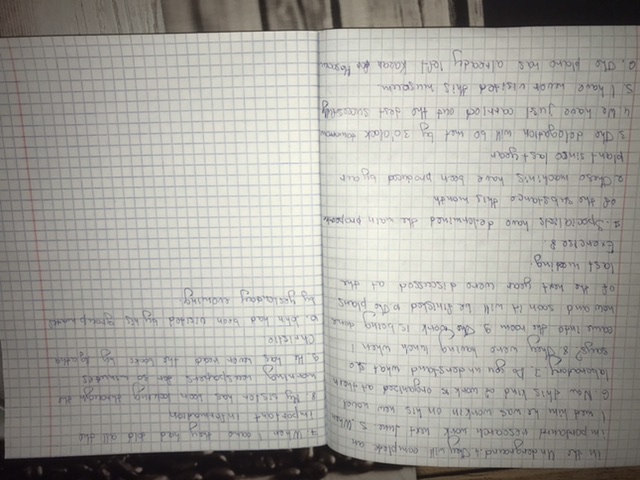 in the Underground 4. They will complete an
important research work next June 5. When
I met him he was work in on his new novel
6 Now this kind of work is organized at their
laboratory 7. Do you understand what
says 8 They were having lunch when I
came into the room 9 The work is being done
now and soon it will be finished The plans
of the next year were discussed at the
last meeting.
Exercise 8.
Specialists have determined the main
of the substance this month
2. These machines have been produced by our
plant since last year
3 The delegation will be met by 3 o'clock tomorrow
4. We have just carried out the test successfully
5. I have never visited this museum
6. The plane has already left Kazan for Moscow
7. When I came they had told all the
important information
8 My sister has been looking through the
morning newspapers for 20 minutes
9 He has never read the books by Agatha
Christie
John had been visited by his groupmates
by yesterday evening